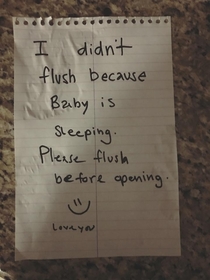 I didn't
flush because
Baby is
sleeping.
Please flush
before opening.
Love you